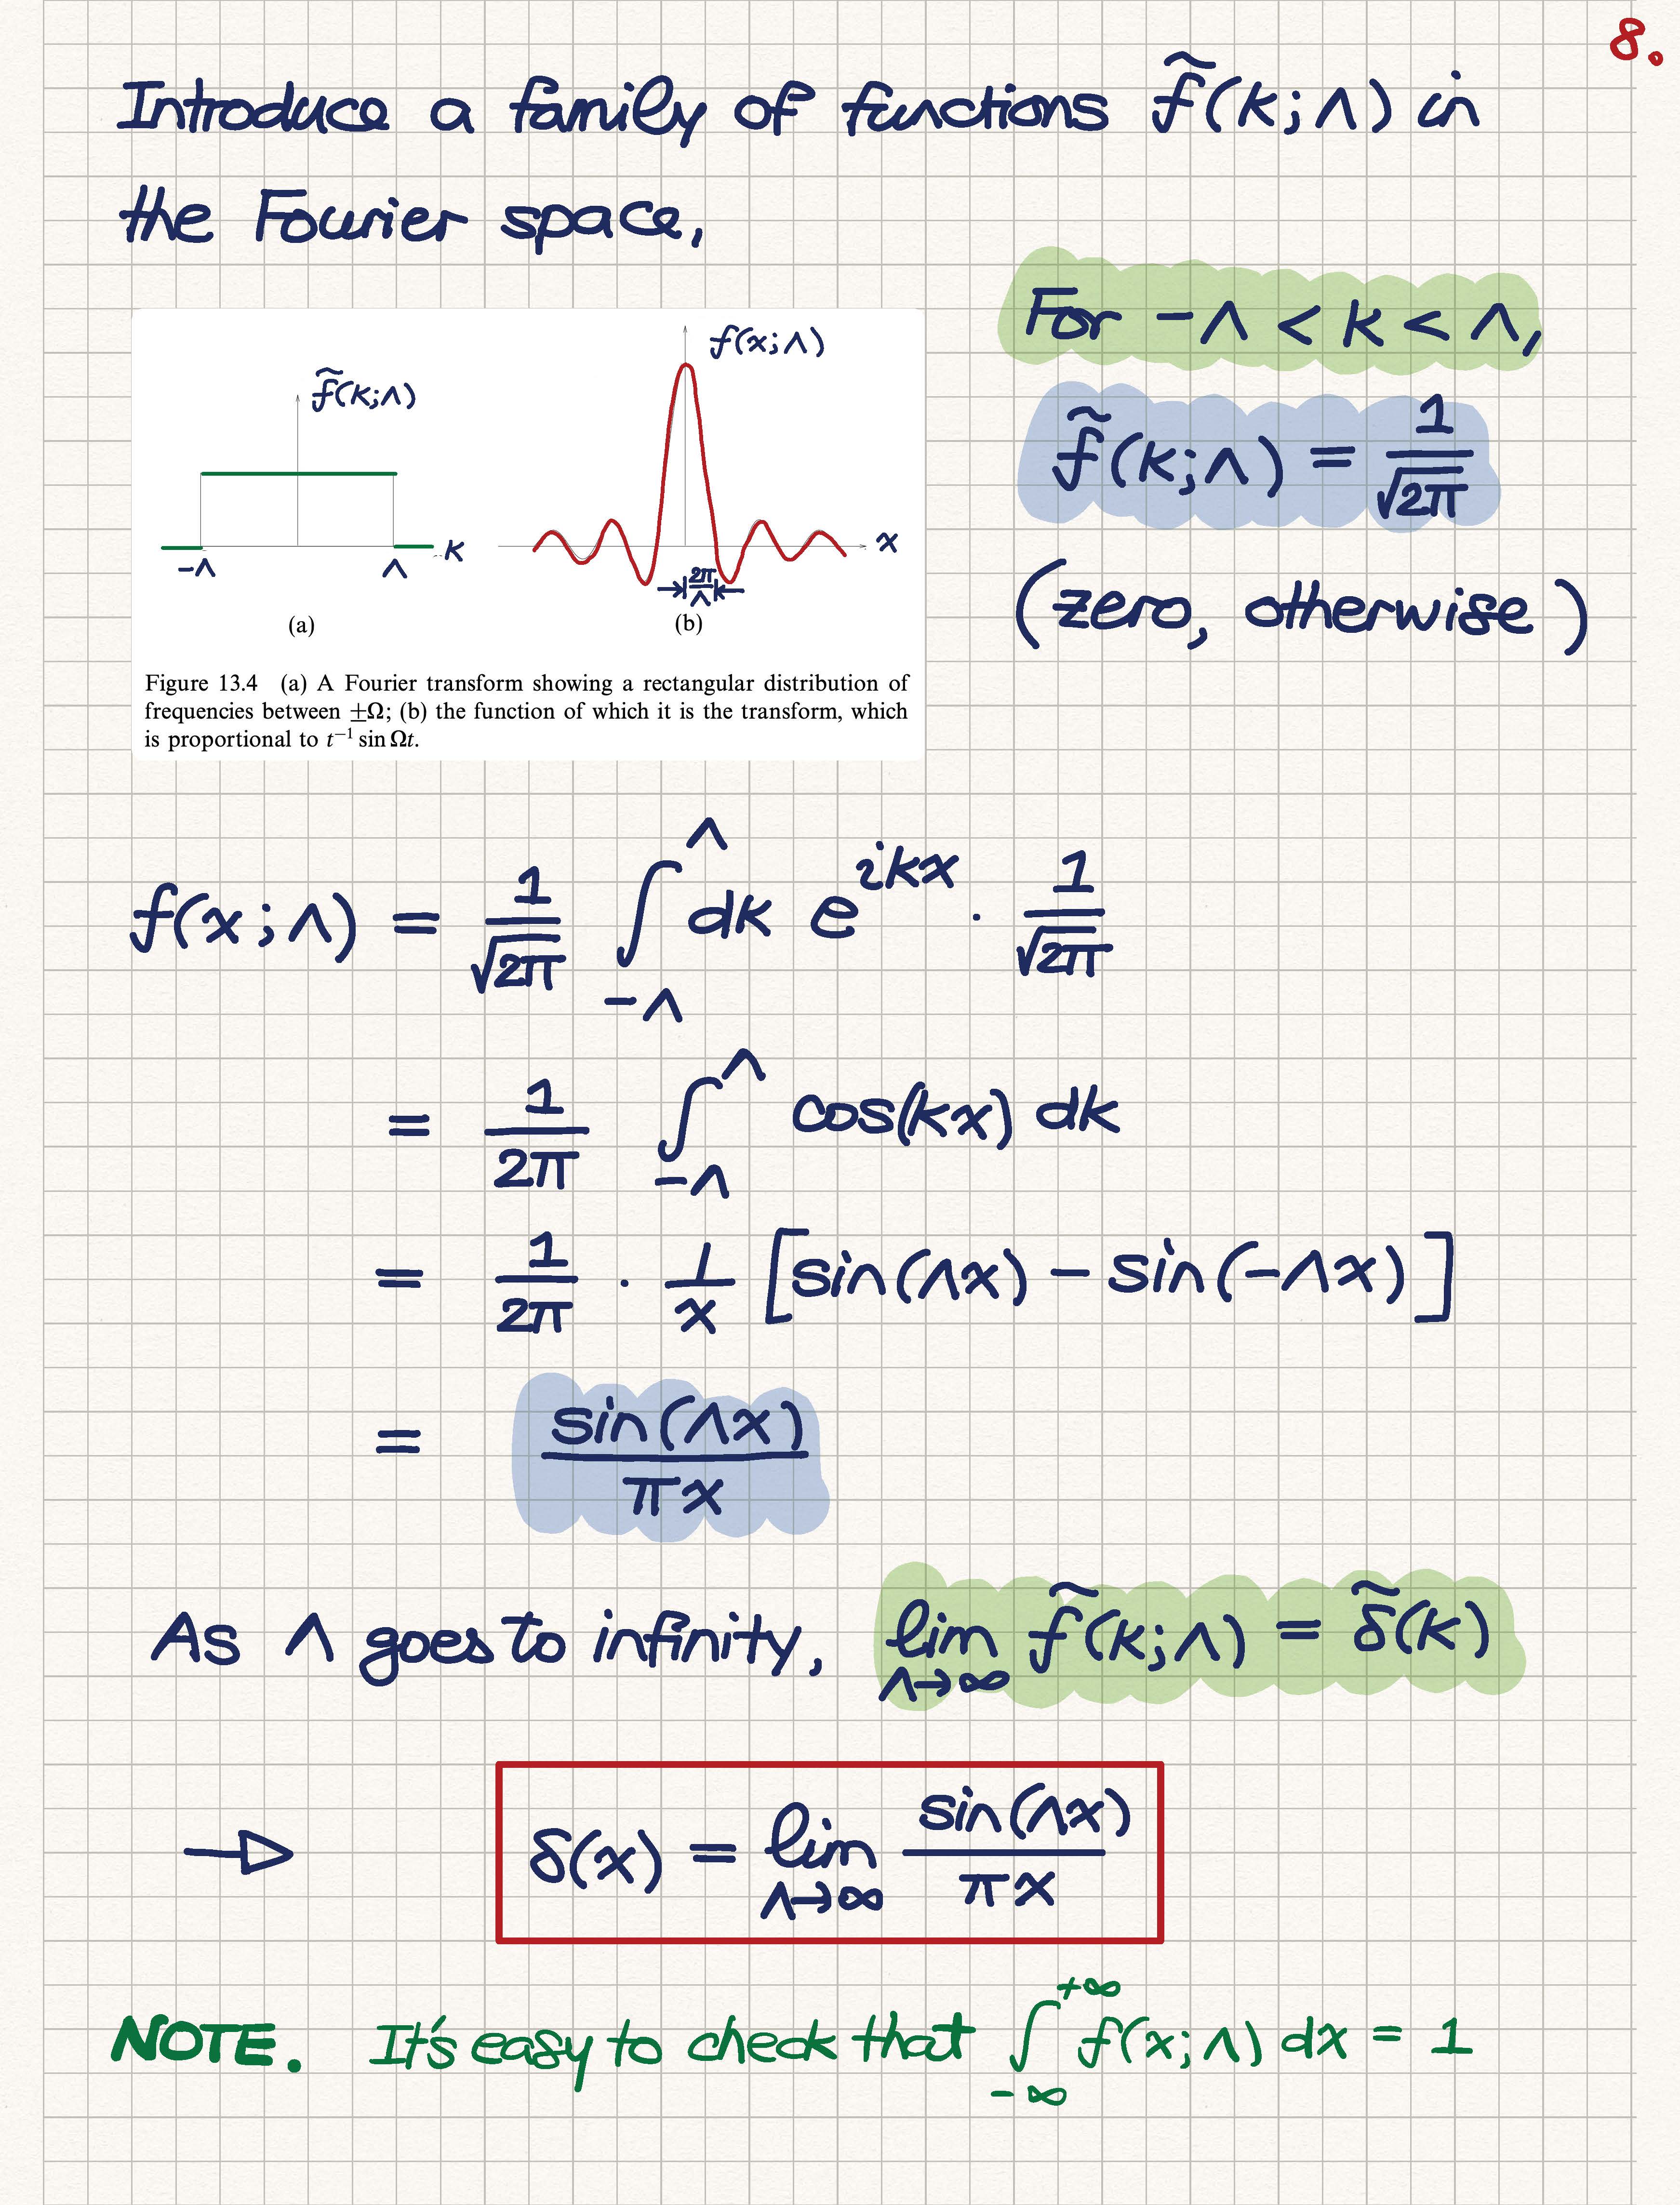 8.
Introduce a family of functions f̃(k;Λ) in
the Fourier space,
For -Λ < k < Λ,
f̃(k;Λ) = 1/√2π
(zero, otherwise)
f̃(k;Λ)
-Λ Λ k
(a)
f(x;Λ)
x
2π/Λ
(b)
Figure 13.4 (a) A Fourier transform showing a rectangular distribution of
frequencies between ±Ω; (b) the function of which it is the transform, which
is proportional to t⁻¹ sin Ωt.
f(x;Λ) = 1/√2π ∫_{-Λ}^{Λ} dk e^{ikx} · 1/√2π
= 1/2π ∫_{-Λ}^{Λ} cos(kx) dk
= 1/2π · 1/x [sin(Λx) - sin(-Λx)]
= sin(Λx)/πx
As Λ goes to infinity, lim_{Λ→∞} f̃(k;Λ) = δ̃(k)
→ δ(x) = lim_{Λ→∞} sin(Λx)/πx
NOTE. It's easy to check that ∫_{-∞}^{+∞} f(x;Λ) dx = 1